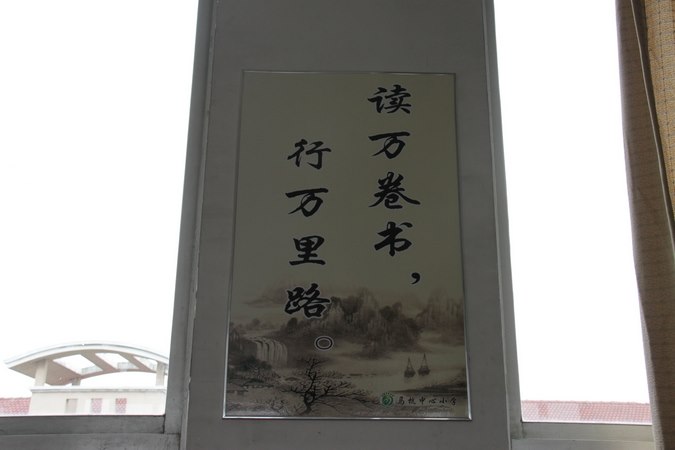 读万卷书，
行万里路。
马杭中心小学